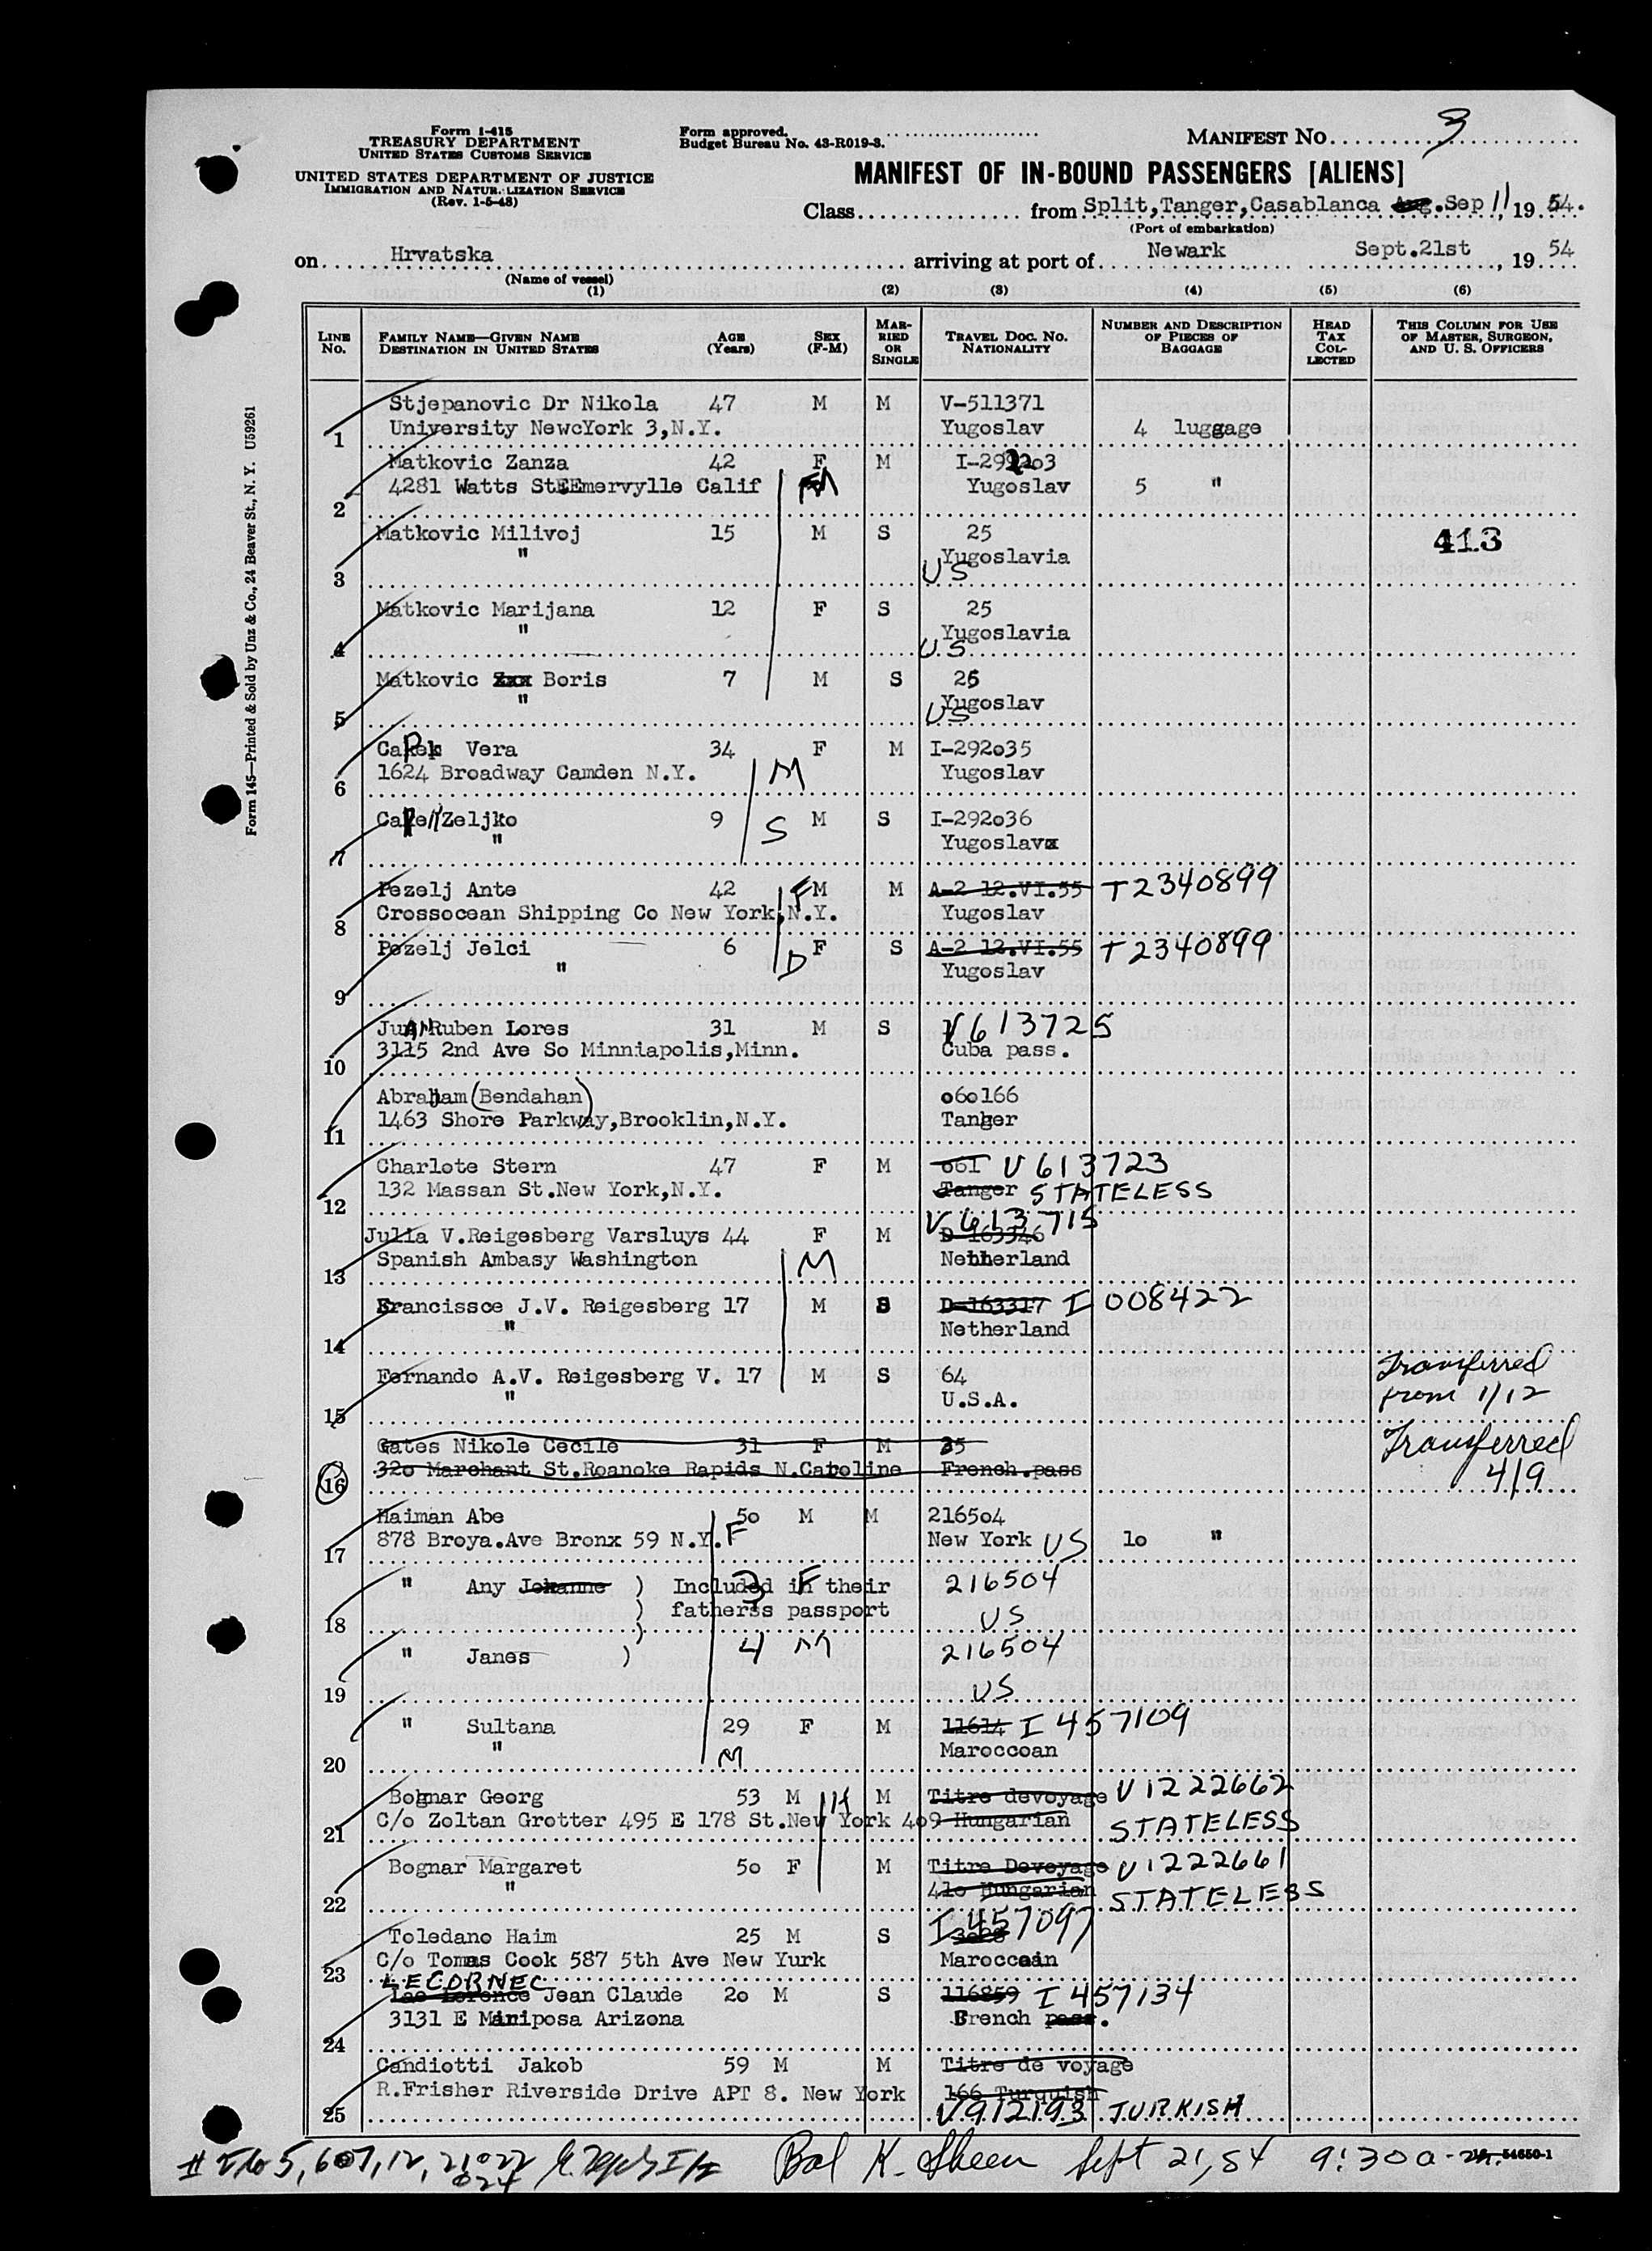 Form I-415
TREASURY DEPARTMENT
UNITED STATES CUSTOMS SERVICE
UNITED STATES DEPARTMENT OF JUSTICE
IMMIGRATION AND NATURALIZATION SERVICE
(Rev. 1-5-48)
Form approved.
Budget Bureau No. 43-R019-3.
MANIFEST NO. 3
MANIFEST OF IN-BOUND PASSENGERS [ALIENS]
Class from Split,Tanger,Casablanca Aug. Sep 11, 19 54.
(Port of embarkation)
on Hrvatska arriving at port of Newark Sept.21st, 19 54
(Name of vessel)
(1) (2) (3) (4) (5) (6)
LINE No. FAMILY NAME—GIVEN NAME DESTINATION IN UNITED STATES AGE (Years) SEX (F-M) MARRIED OR SINGLE TRAVEL DOC. NO. NATIONALITY NUMBER AND DESCRIPTION OF PIECES OF BAGGAGE HEAD TAX COLLECTED THIS COLUMN FOR USE OF MASTER, SURGEON, AND U. S. OFFICERS
Form 145—Printed & Sold by Unz & Co., 24 Beaver St., N. Y. U59261
Stjepanovic Dr Nikola 47 M M V-511371
1 University NewcYork 3,N.Y. Yugoslav 4 luggage
Matkovic Zanza 42 F M I-292203
2 4281 Watts St Emervylle Calif M Yugoslav 5 "
Matkovic Milivoj 15 M S 25 413
3 " Yugoslavia US
Matkovic Marijana 12 F S 25
4 " Yugoslavia US
Matkovic Boris 7 M S 25
5 " Yugoslav US
Capek Vera 34 F M I-292o35
6 1624 Broadway Camden N.Y. M Yugoslav
Zeljko 9 M S I-292o36
7 " S Yugoslav
Pezelj Ante 42 F M M A-2 12.VI.55 T2340899
8 Crossocean Shipping Co New York,N.Y. Yugoslav
Pezelj Jelci 6 F S A-2 12.VI.55 T2340899
9 " D Yugoslav
Juan Ruben Lores 31 M S V613725
10 3115 2nd Ave So Minniapolis,Minn. Cuba pass.
Abraham (Bendahan) o6o166
11 1463 Shore Parkway,Brooklin,N.Y. Tanger
Charlote Stern 47 F M 661 V613723
12 132 Massan St.New York,N.Y. Tanger STATELESS
V613715
Julia V.Reigesberg Varsluys 44 F M D 163346
13 Spanish Ambasy Washington M Netherland
Francissce J.V. Reigesberg 17 M S D-163317 I 008422
14 " Netherland
Fernando A.V. Reigesberg V. 17 M S 64 Transferred
15 " U.S.A. from 1/12
Gates Nikole Cecile 31 F M 35 Transferred
16 32o Marchant St.Roanoke Rapids N.Caroline French.pass 4/9
Haiman Abe 5o M M 2165o4
17 878 Broya.Ave Bronx 59 N.Y. F New York US 1o "
" Any Johanne ) Included in their 3 F 216504
18 ) fatherss passport US
" Janes ) 4 M 216504
19 US
" Sultana 29 F M 11614 I 457109
20 " M Maroccoan
Bognar Georg 53 M M Titre devoyage V1222662
21 C/o Zoltan Grotter 495 E 178 St.New York 4o9 Hungarian STATELESS
Bognar Margaret 5o F M Titre Devoyage V1222661
22 " 41o Hungarian STATELESS
I 457097
Toledano Haim 25 M S 3028
23 C/o Tomas Cook 587 5th Ave New Yurk Maroccain
LECORNEC
Jean Claude 2o M S 116859 I 457134
24 3131 E Mariposa Arizona French pass.
Candiotti Jakob 59 M M Titre de voyage
R.Frisher Riverside Drive APT 8. New York 166 Turquish
25 V912193 TURKISH
K. Sheen Sept 21, 54 9:30 a 16—54650-1